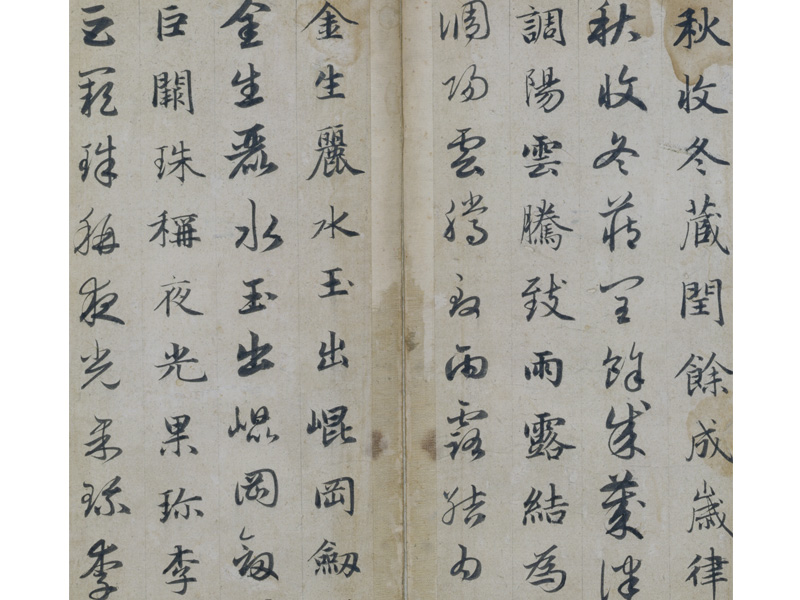 秋收冬藏閏餘成歲律
秋收冬藏閏餘成歲律
調陽雲騰致雨露結為
調陽雲騰致雨露結為
金生麗水玉出崐岡劒
金生麗水玉出崐岡劒
巨闕珠稱夜光果珎李
巨闕珠稱夜光果珎李